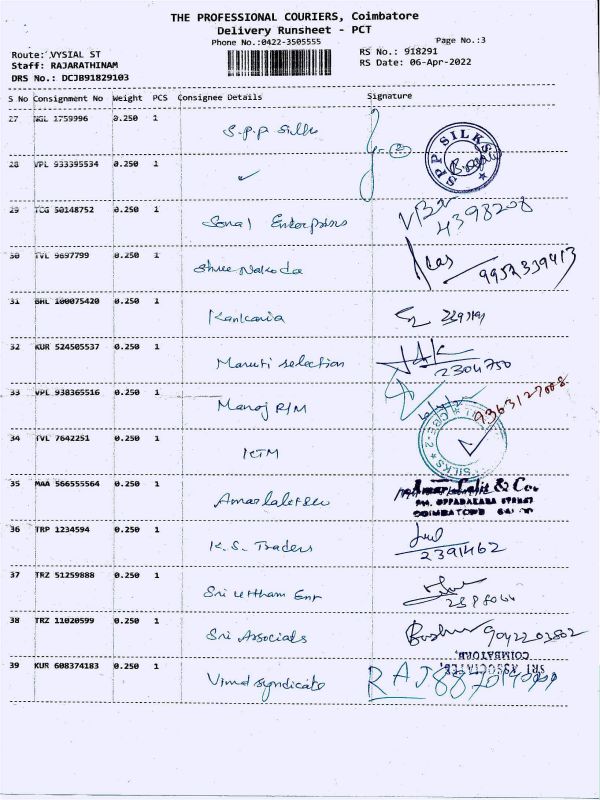 THE PROFESSIONAL COURIERS, Coimbatore
Delivery Runsheet - PCT
Phone No.:0422-3505555
Page No.:3
Route: VYSIAL ST
RS No.: 918291
Staff: RAJARATHINAM
RS Date: 06-Apr-2022
DRS No.: DCJB91829103
S No Consignment No Weight PCS Consignee Details Signature
27 NGL 1759996 0.250 1 S.P.P Silks
SPP SILKS
28 VPL 933395534 0.250 1
29 TCG 50148752 0.250 1 Sonal Enterprises 4398208
30 TVL 9697799 0.250 1 Shree Nakoda 9952339413
31 BHL 100075420 0.250 1 Kankaria
32 KUR 524505537 0.250 1 Maruti selection 2304750
33 VPL 938365516 0.250 1 Manoj R/M
34 TVL 7642251 0.250 1 KTM
CBE-2 SILKS
35 MAA 566555564 0.250 1 Amarlalit & Co
Amar Lalit & Co.
COIMBATORE
36 TRP 1234594 0.250 1 K.S. Traders 2391462
37 TRZ 51259888 0.250 1 Sri uttham Ent
38 TRZ 11020599 0.250 1 Sri Associats 9042202802
SRI ASSOCIATES,
COIMBATORE.
39 KUR 608374183 0.250 1 Vimal syndicate RAJ